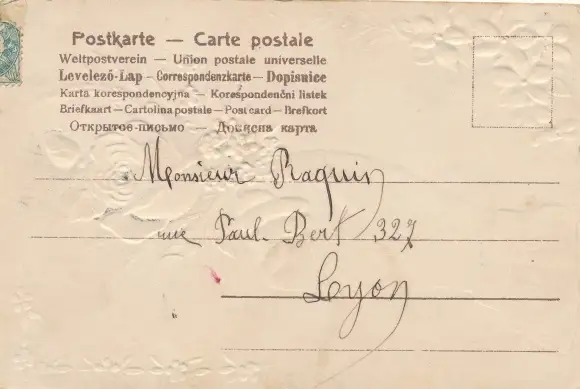 Postkarte — Carte postale
Weltpostverein — Union postale universelle
Levelező-Lap — Correspondenzkarte — Dopisnice
Karta korespondencyjna — Korespondenční lístek
Briefkaart — Cartolina postale — Post card — Brefkort
Открытое письмо — Дописна карта
Monsieur Raquin
rue Paul-Bert 327
Lyon